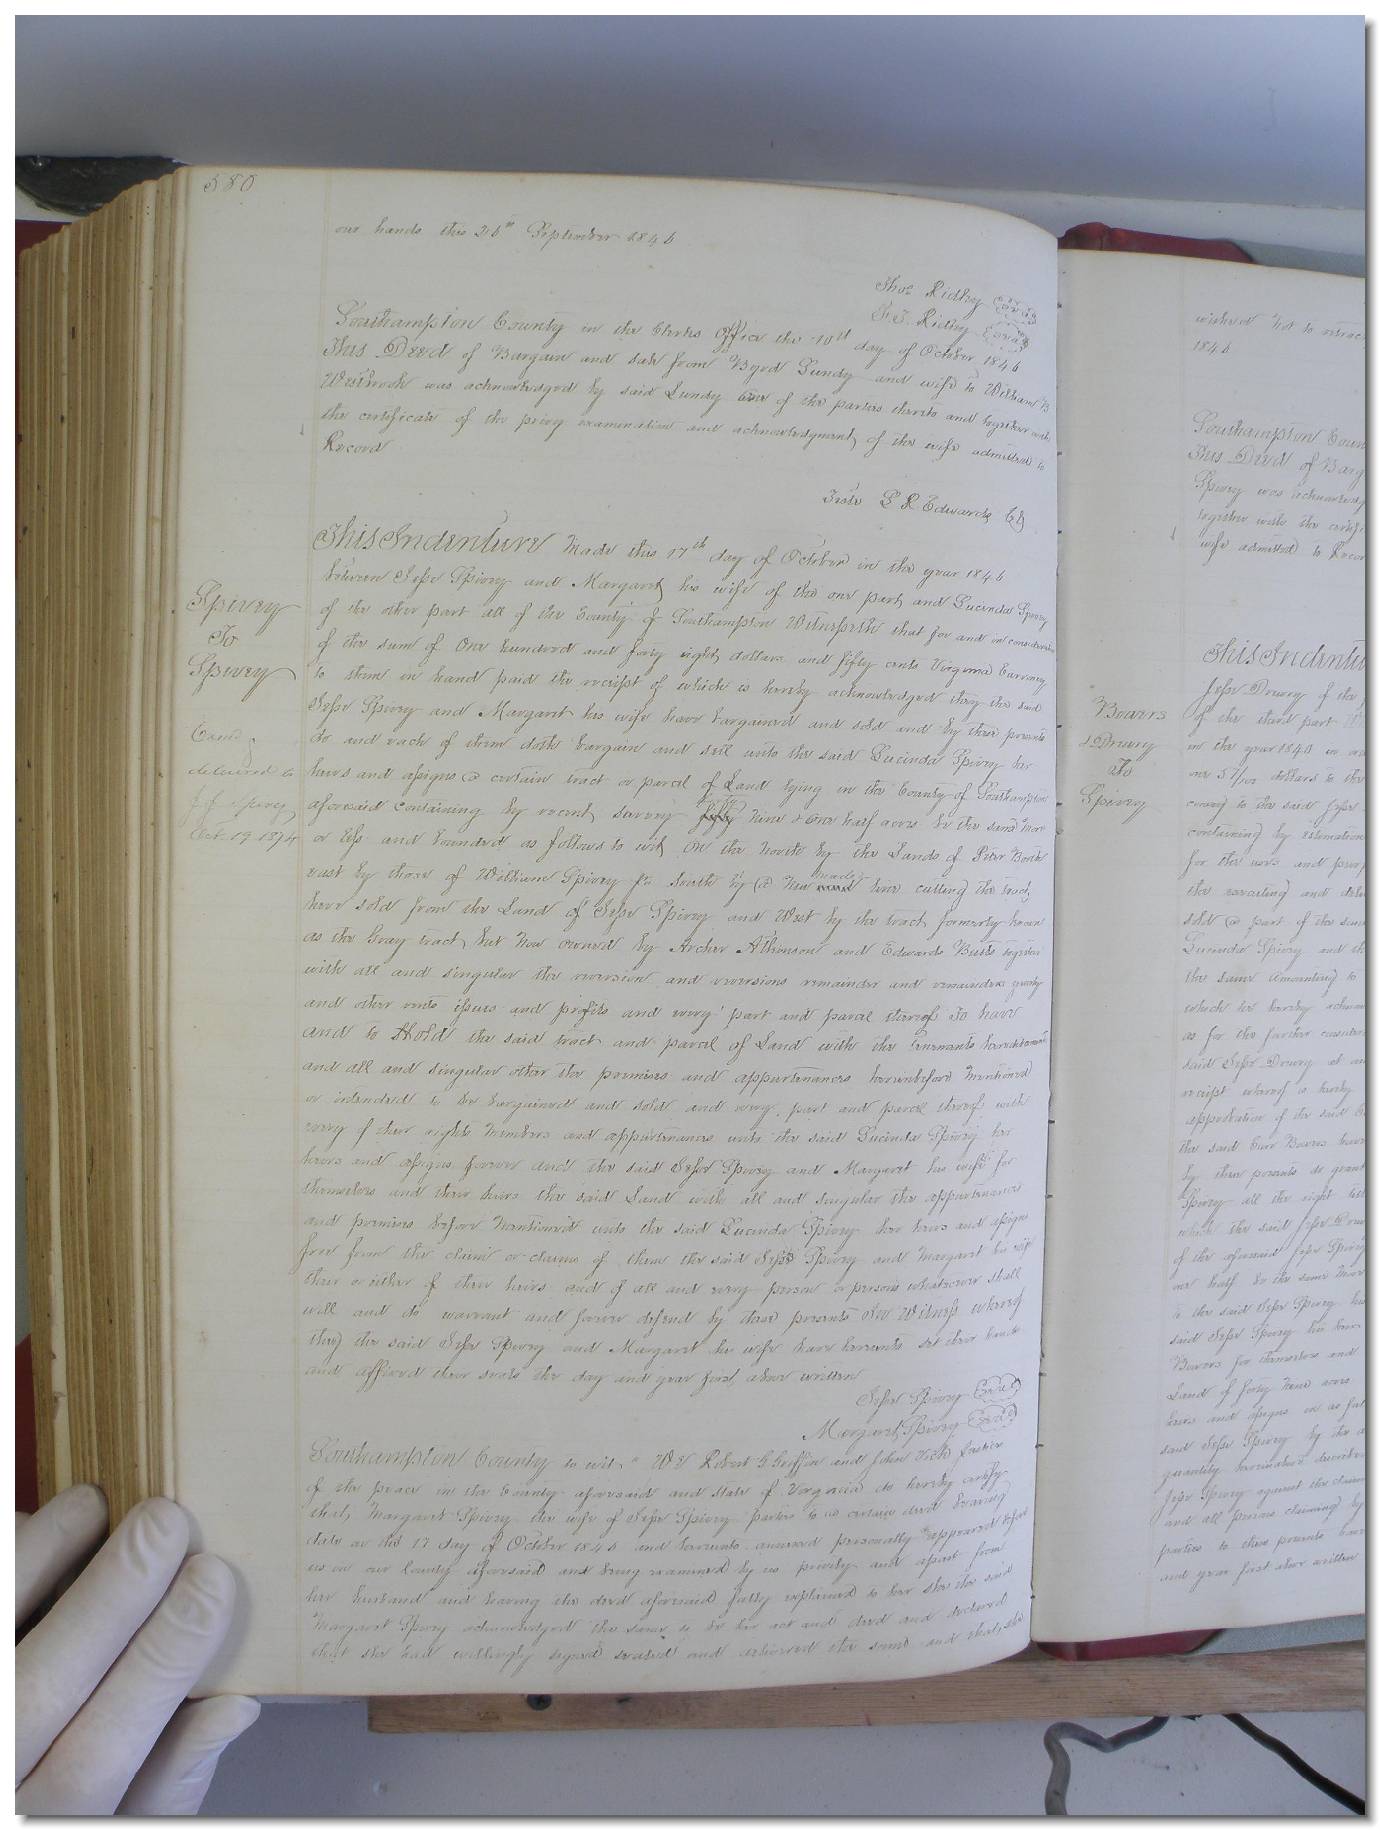 580
our hands this 26th September 1846
Thos Ridley Seal
F. T. Ridley Seal
Southampton County in the Clerks Office the 10th day of October 1846
This Deed of Bargain and sale from Byrd Lundy and wife to William B
Westbrook was acknowledged by said Lundy One of the parties thereto and together with
the certificate of the privy examination and acknowledgment of the wife admitted to
Record
Teste L R Edwards Ck
Spivey
To
Spivey
Exd &
delivered to
J J Spivey
Oct 19 1874
This Indenture Made this 17th day of October in the year 1846
between Jesse Spivey and Margaret his wife of the one part and Lucinda Spivey
of the other part all of the County of Southampton Witnesseth that for and in consideration
of the sum of One hundred and forty eight dollars and fifty cents Virginia Currency
to them in hand paid the receipt of which is hereby acknowledged they the said
Jesse Spivey and Margaret his wife have bargained and sold and by these presents
do and each of them doth bargain and sell unto the said Lucinda Spivey her
heirs and assigns a certain tract or parcel of Land lying in the County of Southampton
aforesaid containing by recent survey forty nine & One half acres be the same more
or less and bounded as follows to wit On the North by the Lands of Peter Booth
east by those of William Spivey South by a new made line cutting the tract
here sold from the Land of Jesse Spivey and West by the tract formerly known
as the Gray tract but now owned by Archer Atkinson and Edwards Butts together
with all and singular the reversion and reversions remainder and remainders yearly
and other rents issues and profits and every part and parcel thereof To have
and to Hold the said tract and parcel of Land with the Tenements hereditaments
and all and singular other the premises and appurtenances hereinbefore mentioned
or intended to be bargained and sold and every part and parcel thereof with
every of their rights members and appurtenances unto the said Lucinda Spivey her
heirs and assigns forever and the said Jesse Spivey and Margaret his wife for
themselves and their heirs the said Land with all and singular the appurtenances
and premises before mentioned unto the said Lucinda Spivey her heirs and assigns
free from the claim or claims of them the said Jesse Spivey and Margaret his wife
their or either of their heirs and of all and every person or persons whatsoever shall
will and do warrant and forever defend by these presents In Witness whereof
they the said Jesse Spivey and Margaret his wife have hereunto set their hands
and affixed their seals the day and year first above written
Jesse Spivey Seal
Margaret Spivey Seal
Southampton County to wit " We Robert G Griffin and John Vick Justices
of the peace in the County aforesaid and State of Virginia do hereby certify
that Margaret Spivey the wife of Jesse Spivey parties to a certain deed bearing
date on the 17 day of October 1846 and hereunto annexed personally appeared before
us in our County aforesaid and being examined by us privily and apart from
her husband and having the deed aforesaid fully explained to her she the said
Margaret Spivey acknowledged the same to be her act and deed and declared
that she had willingly signed sealed and delivered the same and that she
wished not to retract
1846
Southampton Coun
This Deed of Barg
Spivey was acknowledg
together with the certif
wife admitted to Recor
Bowers
& Drury
To
Spivey
This Indentu
Jesse Drury of the
of the third part
in the year 1840
one 57/100 dollars to the
to the said Jesse
containing by estimation
for the uses and purp
the executing and
sold a part of the
Lucinda Spivey and th
the same amounting to
which he hereby ackn
as for the further consider
said Jesse Drury at
receipt whereof is hereby
approbation of the said
the said Bowers have
by these presents do grant
Spivey all the right
which the said Jesse Drur
of the aforesaid Jesse Spivey
one half be the same more
to the said Jesse Spivey his
said Jesse Spivey his heirs
Bowers for themselves and
Land of forty nine acres
heirs and assigns
said Jesse Spivey by the
quantity
Jesse Spivey against the claim
and all persons claiming by
parties to these presents have
and year first above written